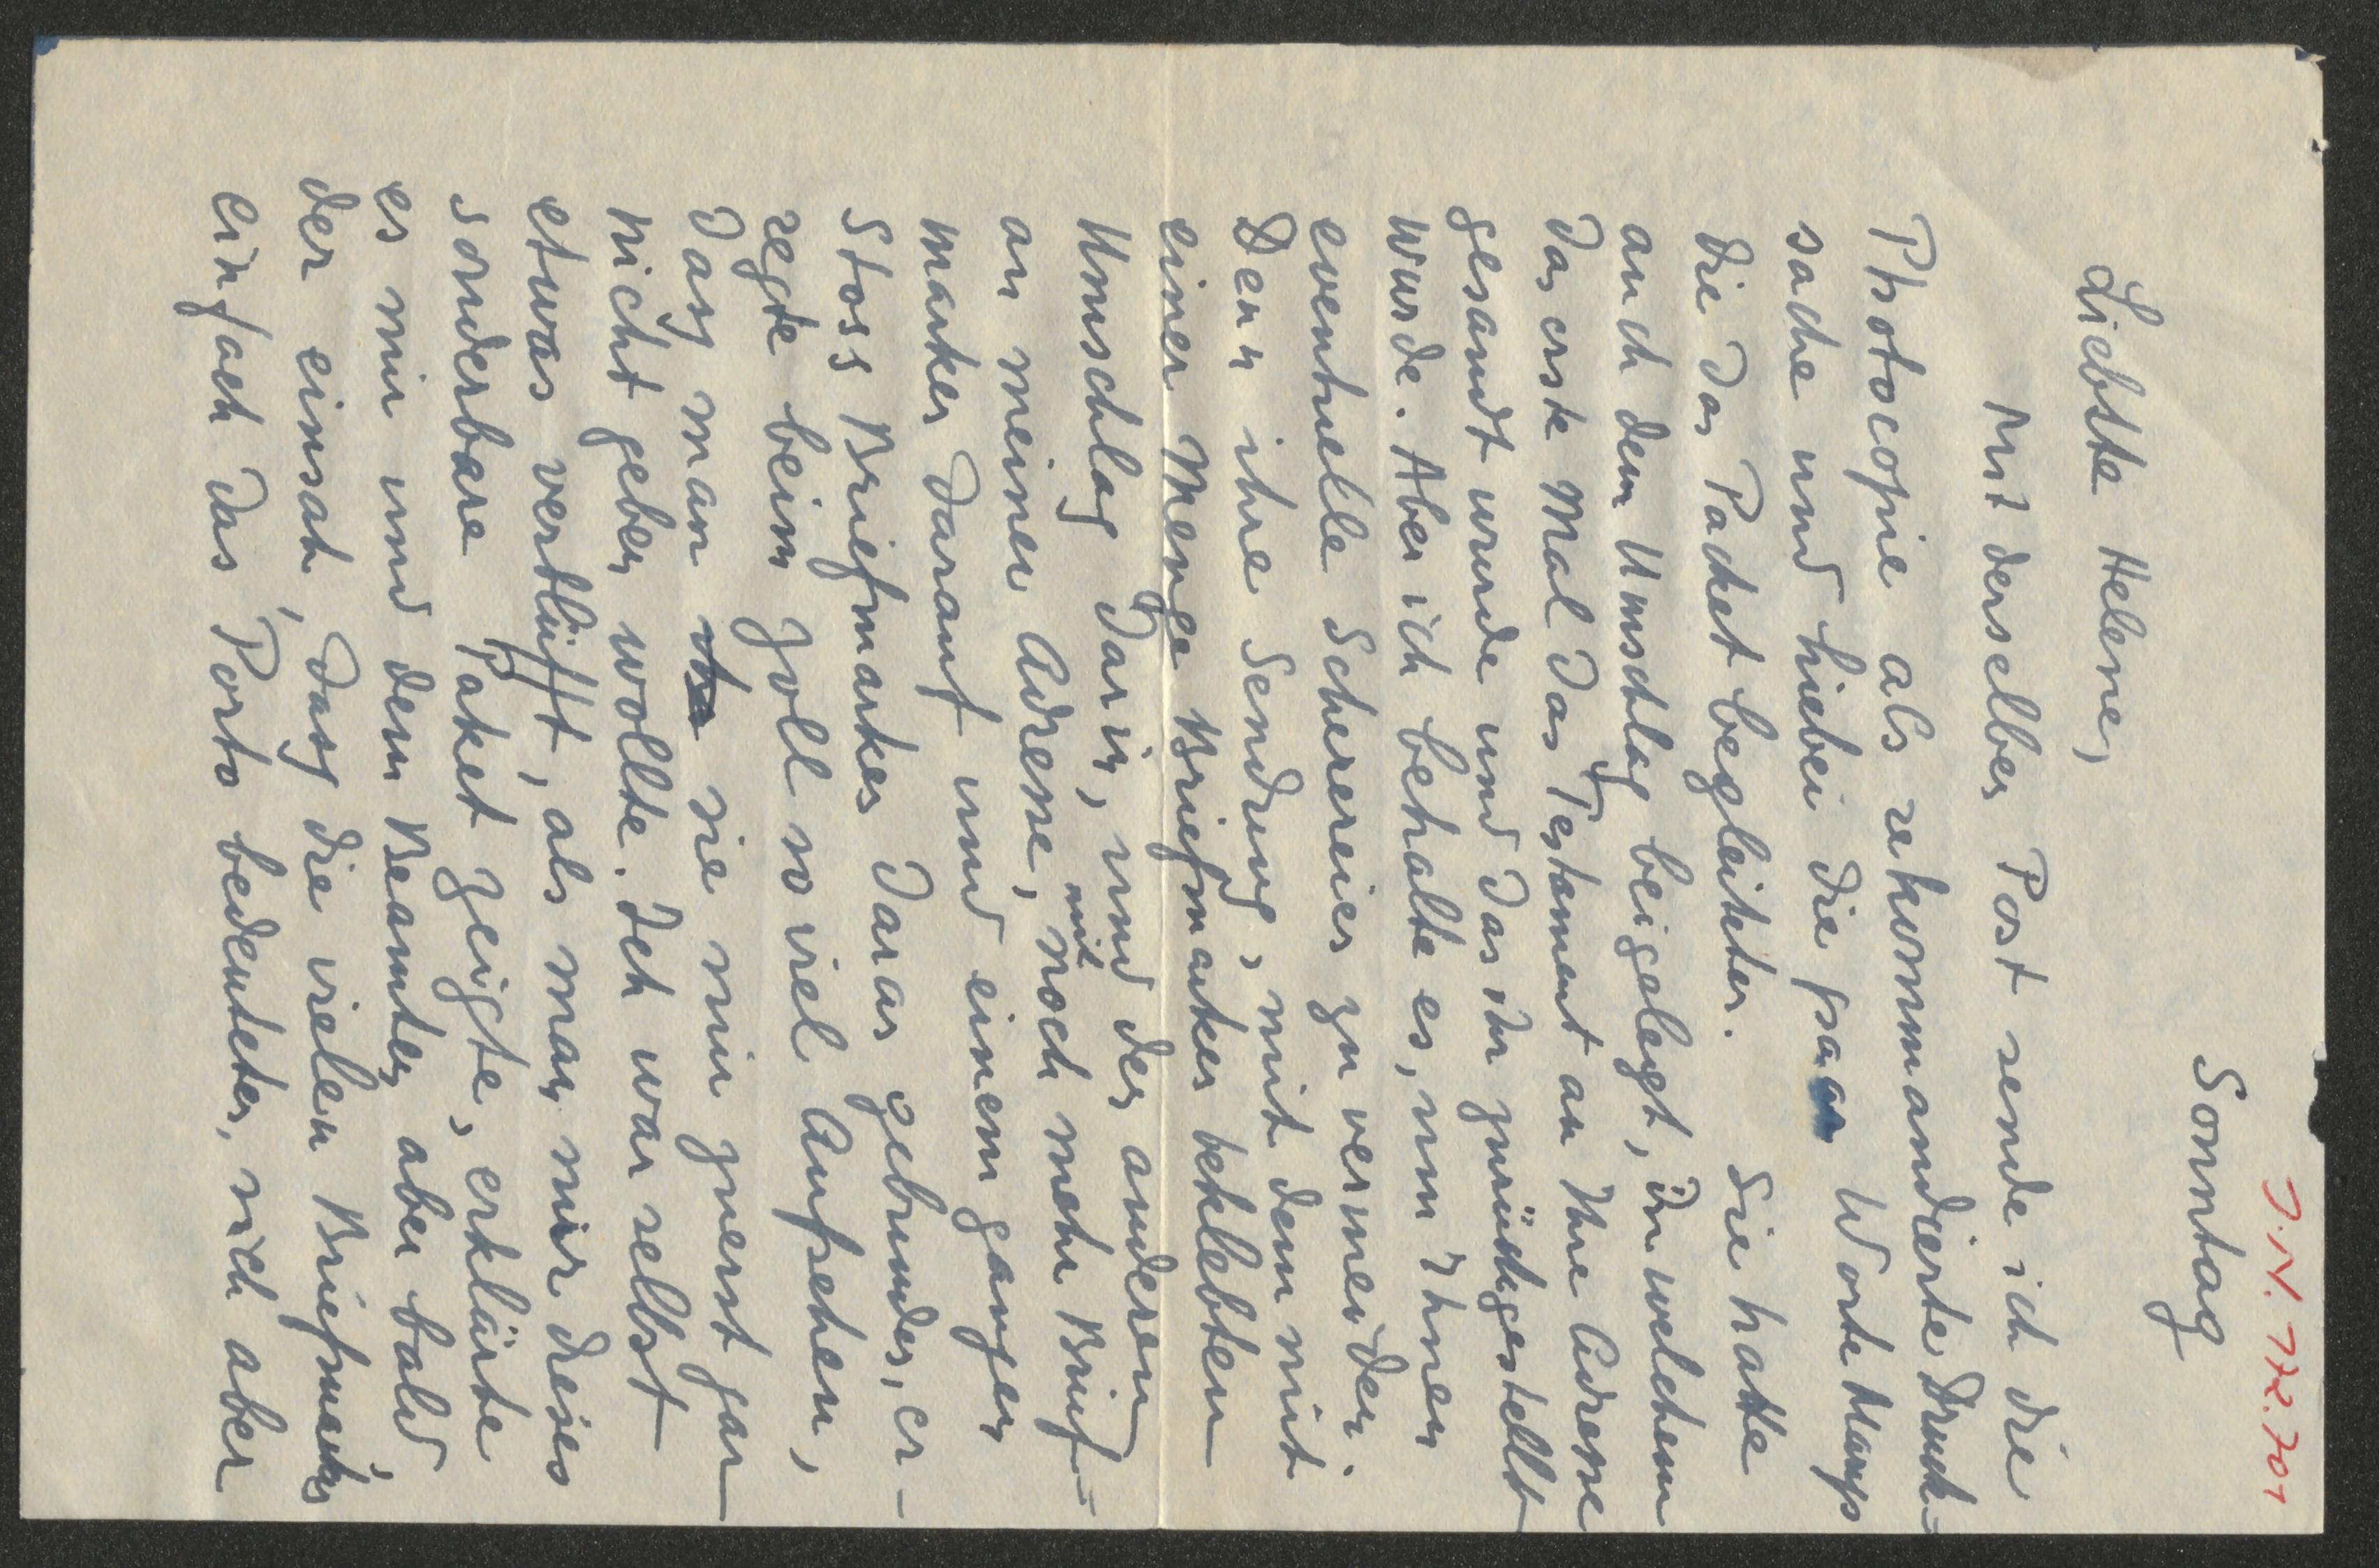 J.N. 172.701
Sonntag
Liebste Helene,
Mit derselben Post sende ich die
Photocopie als rekommandierte Druck-
sache und hiebei die paar Worte Manys
die das Packet begleiteten. Sie hatte
auch dem Umschlag beigelegt, in welchem
das erste Mal das Testament an Ihre Adresse
gesandt wurde und das ihr zurückgestellt
wurde. Aber ich behalte es, um Ihnen
eventuelle Scherereien zu vermeiden.
Denn ihre Sendung, mit dem mit
einer Menge Briefmarken beklebten
Umschlag darin, und den anderen
an meine Adresse, mit noch mehr Brief-
marken darauf und einem ganzen
Stoss Briefmarken daran gebunden, er-
regte beim Zoll so viel Aufsehen,
dass man sie mir zuerst gar
nicht geben wollte. Ich war selbst
etwas verblüfft, als man mir dieses
sonderbare Paket zeigte, erklärte
es mir und dem Beamten aber bald,
der einsah, dass die vielen Briefmarken
einfach das Porto bedeuteten, sich aber